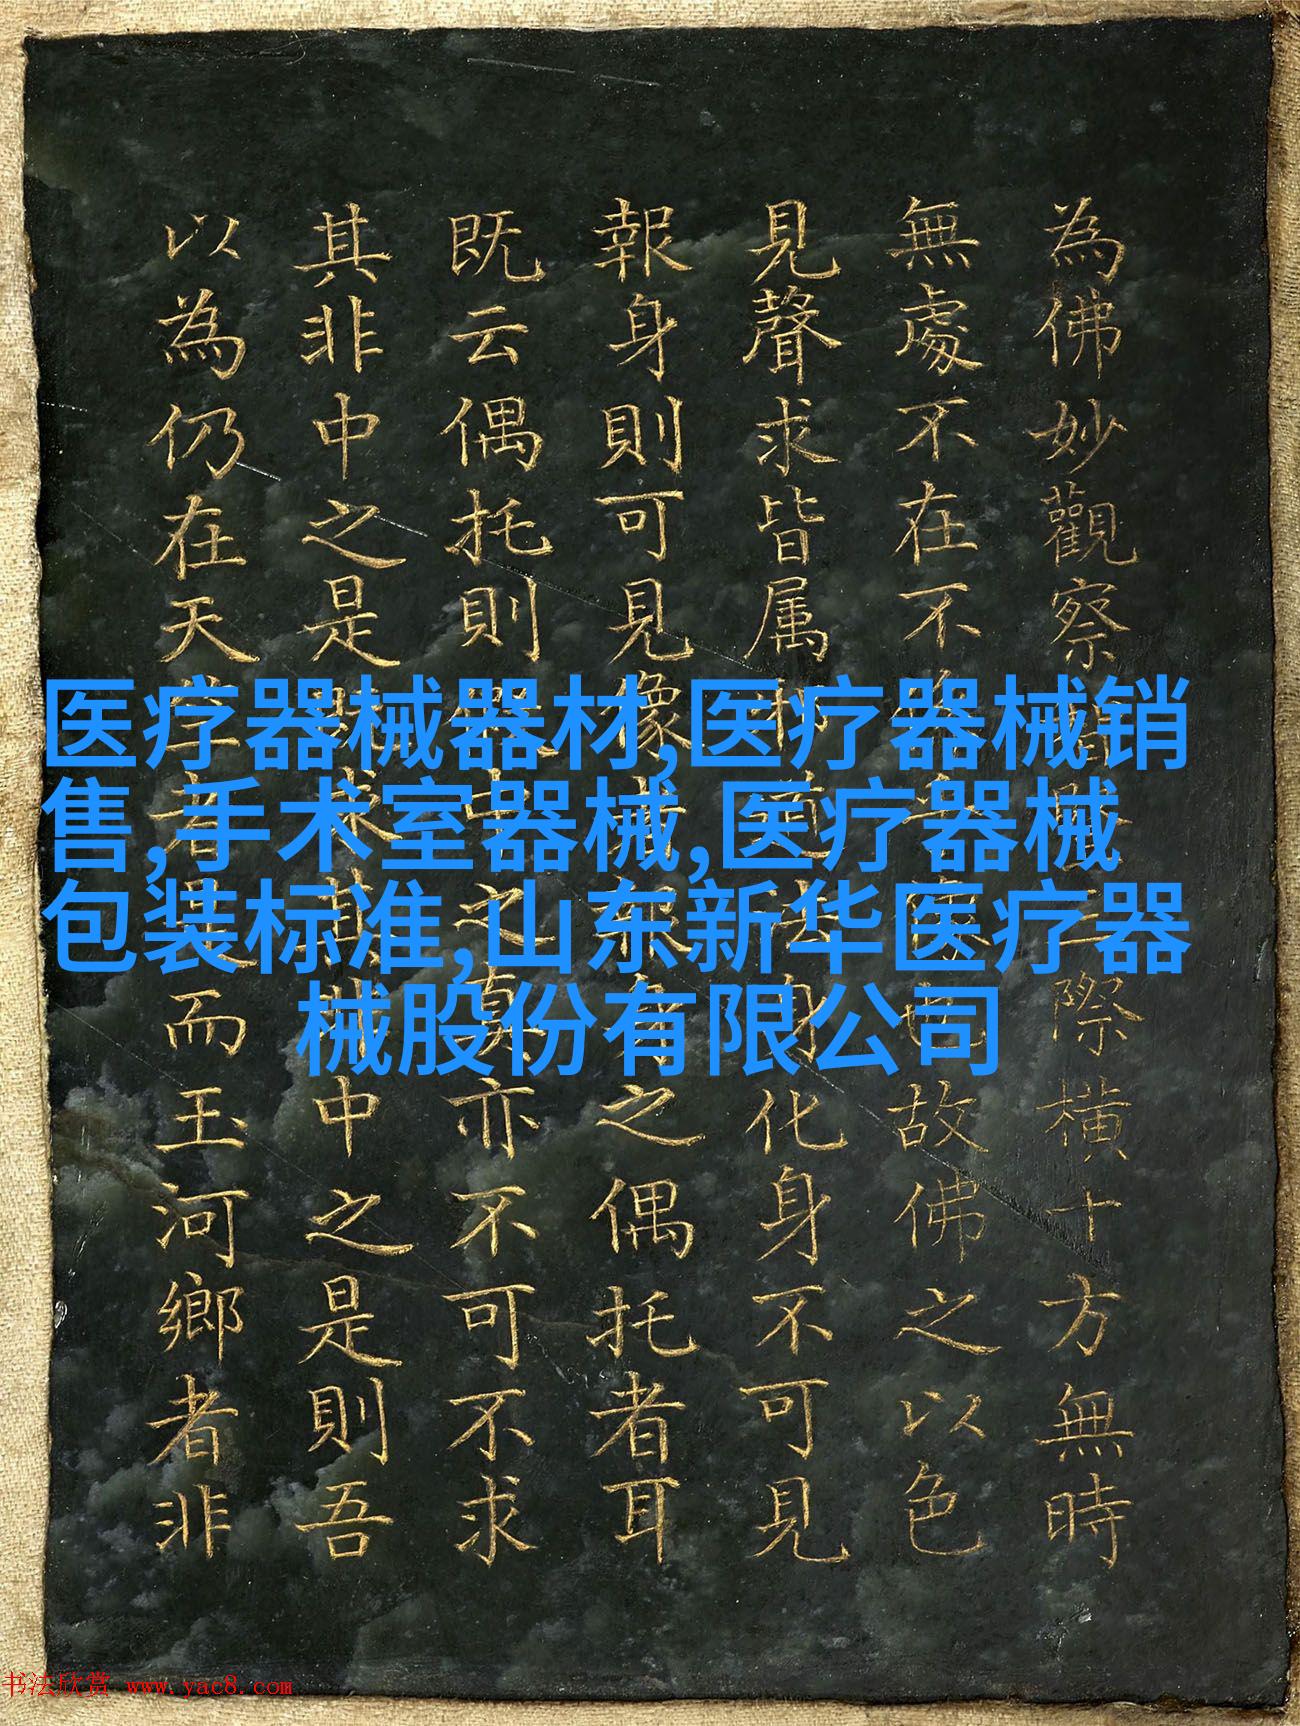 為佛妙觀察
際橫十方無時
無處不在不
故佛之以色
見聲求皆属
化身不可見
報身則可見像
之偶托者耳
既云偶托則
之真亦不可不求
其非中之是
中之是則吾
以為仍在天
而玉河鄉者非
医疗器械器材,医疗器械销
售,手术室器械,医疗器械
包装标准,山东新华医疗器
械股份有限公司
书法欣赏 www.yac8.com